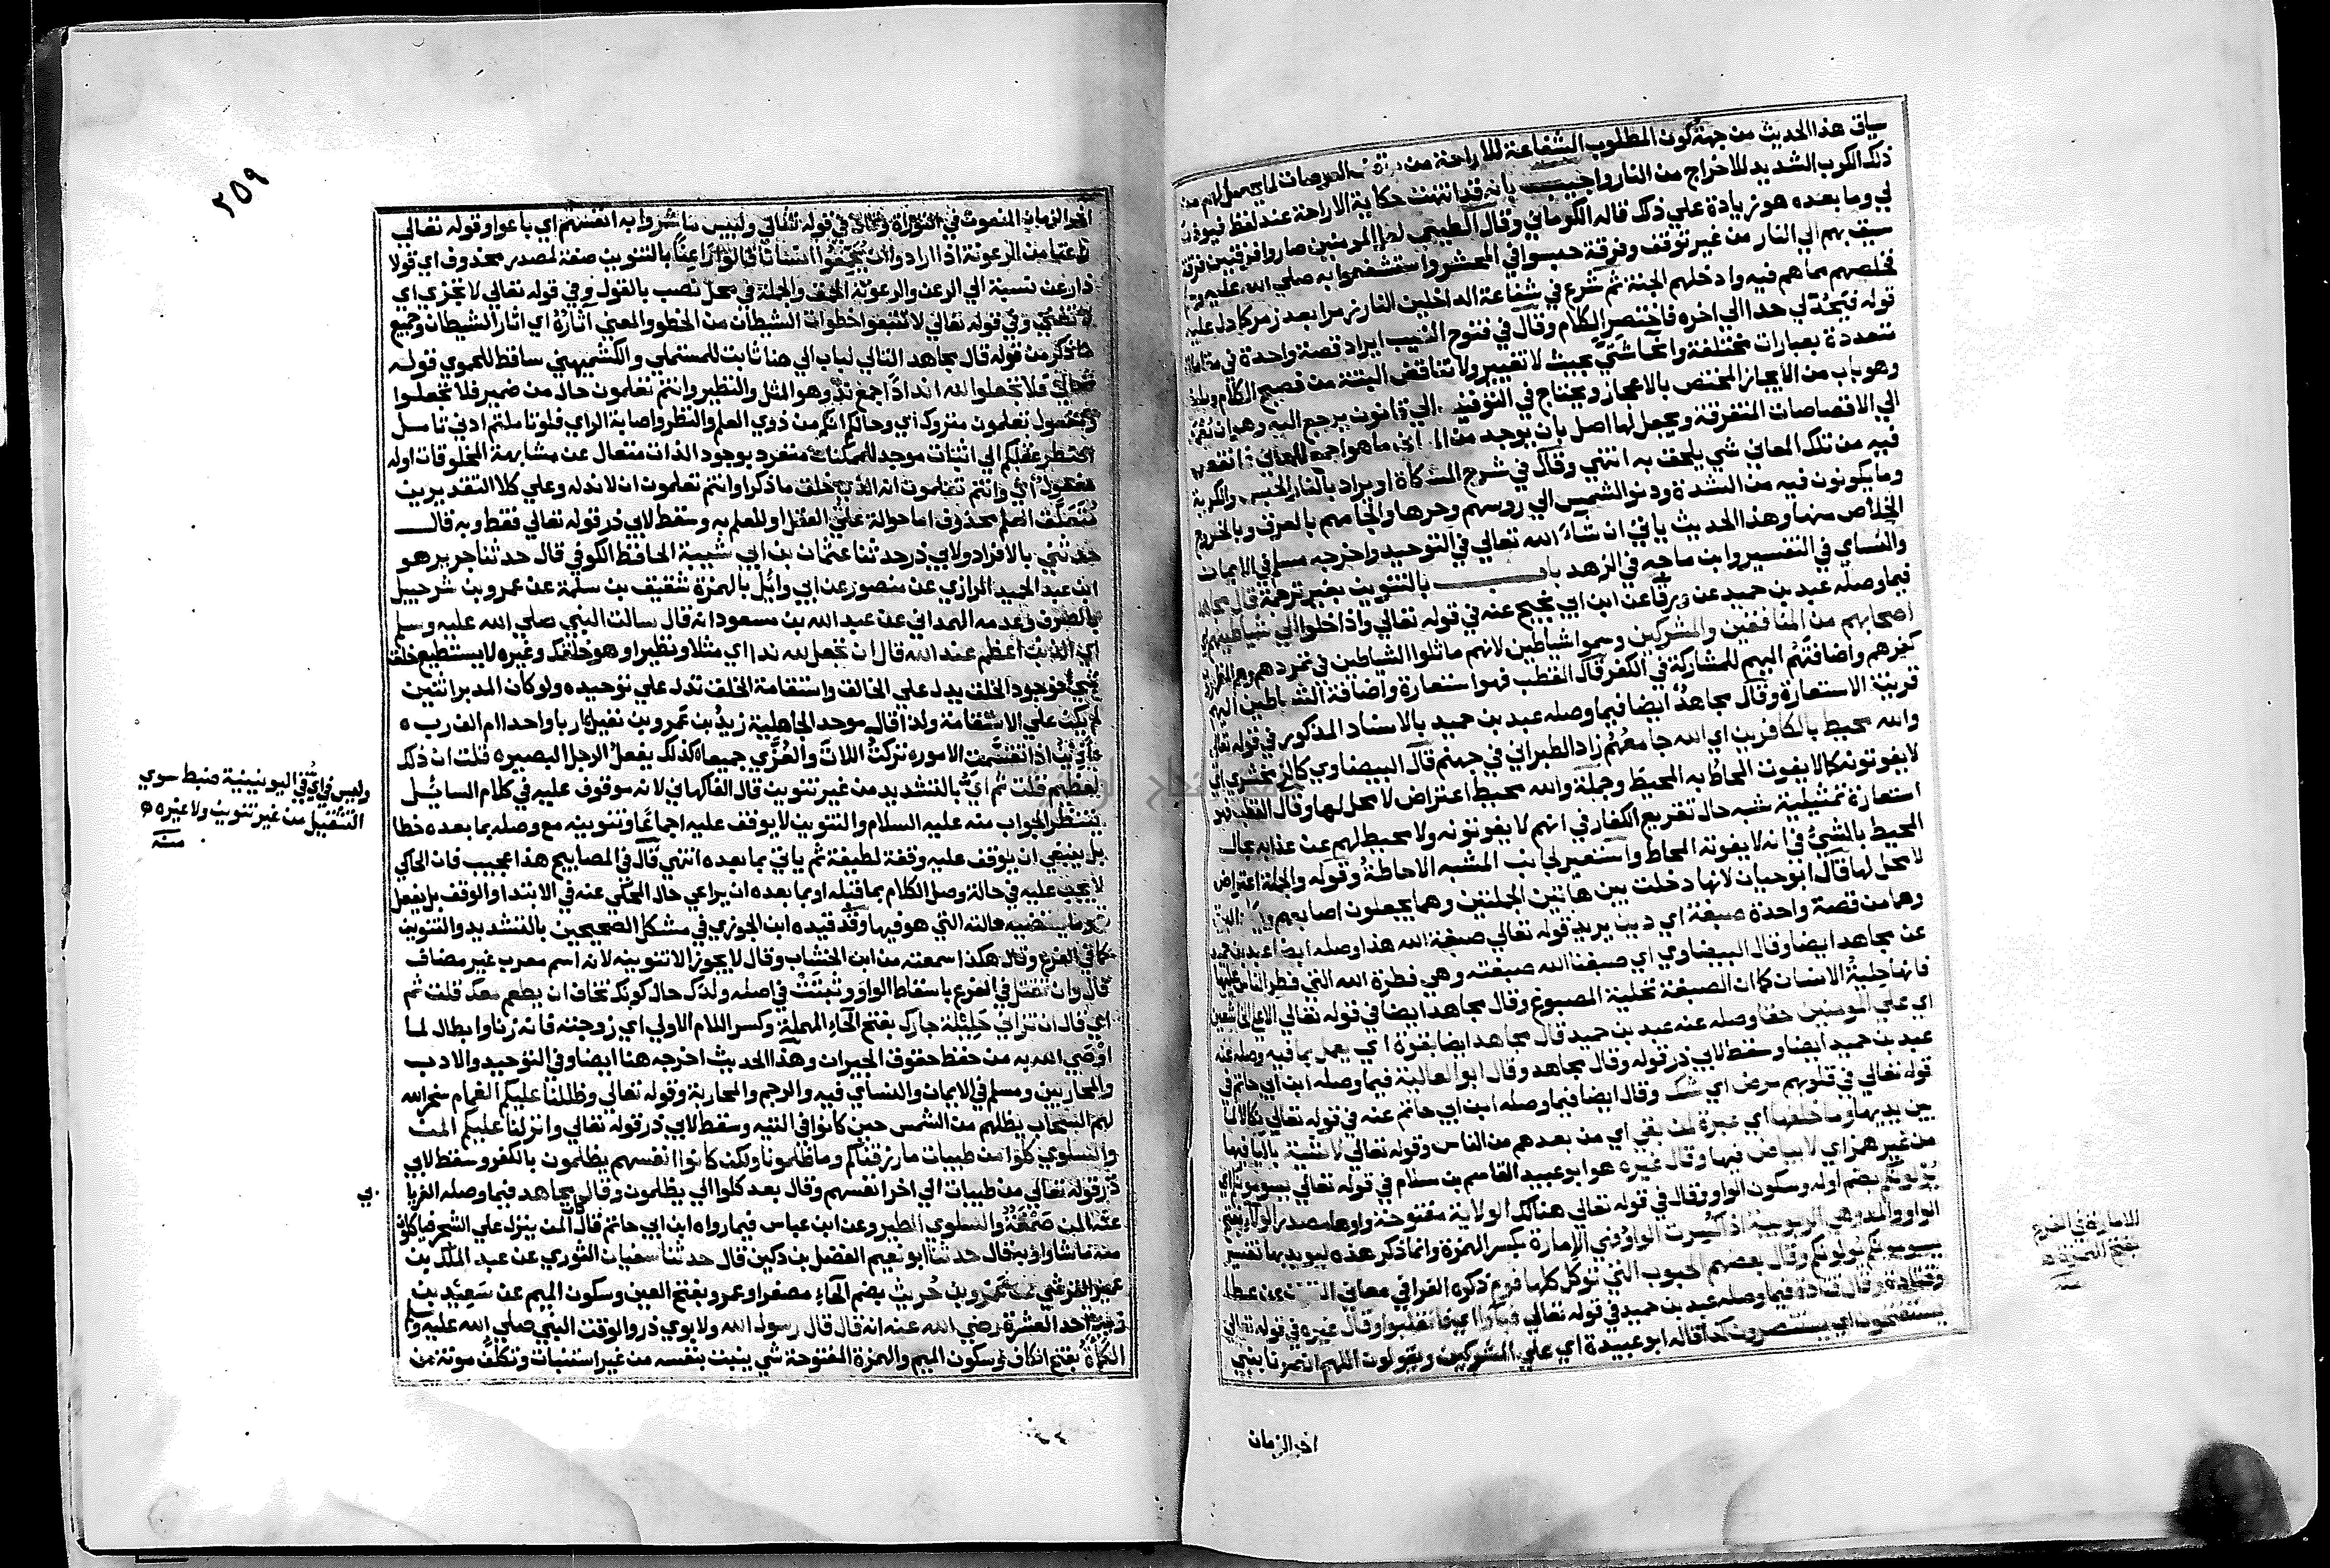 سياق هذا الحديث من جهة كون المطلوب الشفاعة للاراحة من العرصات لما يحصل لهم من
ذلك الكرب الشديد للاخراج من النار واجيب بانه قد انتهت حكاية الاراحة عند لفظ فيوذن
لي وما بعده هو زيادة علي ذلك قاله الكرماني وقال الطيبي لعل المومنين صاروا فرقتين فرقة
سيق بهم الي النار من غير توقف وفرقة حبسوا في المحشر واستشفعوا به صلي الله عليه وسلم
فخلصهم مما هم فيه وادخلهم الجنة ثم شرع في شفاعة الداخلين النار زمرا بعد زمر كما دل عليه
قوله فيحد لي حدا الي اخره فاختصر الكلام وقال في فتوح الغيب ايراد قصة واحدة في مقامات
متعددة بعبارات مختلفة وانحا شتي بحيث لا تغيير ولا تناقض البتة من فصيح الكلام وبليغه
وهو باب من الايجاز المختص بالاعجاز ويحتاج في التوفيق الي قانون يرجع اليه وهو ان يعمد
الي الاقتصاصات المتفرقة ويجعل لها اصل بان يوجد من المعاني ما هو اجمع للمعاني فما نقص
فيه من تلك المعاني شي يلحق به انتهي وقال في شرح المشكاة او يراد بالنار الحبس والكربة
وما يكونون فيه من الشدة ودنو الشمس الي روسهم وحرها والجامهم بالعرق وبالخروج
الخلاص منها وهذا الحديث ياتي ان شاء الله تعالي في التوحيد واخرجه مسلم في الايمان
والنساي في التفسير وابن ماجه في الزهد باب بالتنوين بغير ترجمة قال مجاهد
فيما وصله عبد بن حميد عن ورقا عن ابن ابي نجيح عنه في قوله تعالي واذا خلوا الي شياطينهم اي
اصحابهم من المنافقين والمشركين وسموا شياطين لانهم ماثلوا الشياطين في تمردهم وهم المظهرون
كفرهم واضافتهم اليهم للمشاركة في الكفر قال القطب فهو استعارة واضافة الشياطين اليهم
قرينة الاستعارة وقال مجاهد ايضا فيما وصله عبد بن حميد بالاسناد المذكور في قوله تعالي
والله محيط بالكافرين اي الله جامعهم زاد الطبراني في جهنم قال البيضاوي كالزمخشري اي
لا يفوتونه كما لا يفوت المحاط به المحيط وجملة والله محيط اعتراض لا محل لها وقال القطب فهو
استعارة تمثيلية شبه حال تقريع الكفار في انهم لا يفوتونه ولا محيط لهم عن عذابه بحال
المحيط بالشي في انه لا يفوته المحاط واستعير لجانب المشبه الاحاطة وقوله والجملة اعتراض
لا محل لها قال ابو حيان لانها دخلت بين هاتين الجملتين وهما يجعلون اصابعهم
وهما من قصة واحدة صبغة اي دين يريد قوله تعالي صبغة الله هذا وصله ايضا عبد بن حميد
عن مجاهد ايضا وقال البيضاوي اي صبغنا الله صبغته وهي فطرة الله التي فطر الناس عليها
فانها حلية الانسان كما ان الصبغة تحلية المصبوغ وقال مجاهد ايضا في قوله تعالي الا علي الخاشعين
اي علي المومنين حقا وصله عنه عبد بن حميد قال مجاهد ايضا بقوة اي يعمل بما فيه وصله عنه
عبد بن حميد ايضا وسقط لابي ذر قوله وقال مجاهد وقال ابو العالية فيما وصله ابن ابي حاتم في
قوله تعالي في قلوبهم مرض اي شك وقال ايضا فيما وصله ابن ابي حاتم عنه في قوله تعالي نكالا لما
بين يديها وما خلفها اي عبرة لمن بقي اي من بعدهم من الناس وقوله تعالي لا شية باليا فيها
من غير همز اي لا بياض فيها وقال غيره هو ابو عبيد القاسم بن سلام في قوله تعالي يسومونكم اي
يولونكم بضم اوله وسكون الواو وقال في قوله تعالي هنالك الولاية مفتوحة واوها مصدر الولاء بفتح
الواو والمد وهي الربوبية اذا كسرت الواو فهي الامارة بكسر الهمزة وانما ذكر هذه ليويد بها تفسير
يسومونكم يولونكم وقال بعضهم الحبوب التي توكل كلها فوم ذكره الفرا في معاني القران عن عطا
وقتادة وقال قتادة فيما وصله عبد بن حميد في قوله تعالي فباوا اي فانقلبوا وقال غيره في قوله تعالي
يستفتحون اي يستنصرون كذا قاله ابو عبيدة اي علي المشركين ويقولون اللهم انصرنا بنبي
اخر الزمان
للامارة في الفرع
بفتح الهمزة
منه
٢٥٩
اخر الزمان المنعوت في التوراة وقال في قوله تعالي ولبيس ما شروا به انفسهم اي باعوا وقوله تعالي
راعنا من الرعونة اذا ارادوا ان يحمقوا انسانا قالوا راعنا بالتنوين صفة لمصدر محذوف اي قولا
ذا رعن نسبة الي الرعن والرعونة الحمق والجملة في محل نصب بالقول وفي قوله تعالي لا تجزي اي
لا تغني وفي قوله تعالي لا تتبعوا خطوات الشيطان من الخطو والمعني اثاره اي اثار الشيطان وجميع
ما ذكر من قوله قال مجاهد التالي لباب الي هنا ثابت للمستملي والكشميهني ساقط للحموي قوله
تعالي فلا تجعلوا لله اندادا جمع ند وهو المثل والنظير وانتم تعلمون حال من ضمير فلا تجعلوا
ومفعول تعلمون متروك اي وحالكم انكم من ذوي العلم والنظر واصابة الراي فلو تاملتم ادني تامل
اضطر عقلكم الي اثبات موجد للممكنات متفرد بوجود الذات متعال عن مشابهة المخلوقات اوله
مفعول اي وانتم تعلمون انه الذي خلق ما ذكر او انتم تعلمون ان لا ند له وعلي كلا التقديرين
متعلق العلم محذوف اما حوالة علي العقل او للعلم به وسقط لابي ذر قوله تعالي فقط وبه قال
حدثني بالافراد ولابي ذر حدثنا عثمان بن ابي شيبة الحافظ الكوفي قال حدثنا جرير هو
ابن عبد الحميد الرازي عن منصور عن ابي وائل بالهمزة شقيق بن سلمة عن عمرو بن شرحبيل
بالصرف وعدمه الهمداني عن عبد الله بن مسعود انه قال سالت النبي صلي الله عليه وسلم
اي الذنب اعظم عند الله قال ان تجعل لله ندا اي مثلا ونظيرا وهو خلقك وغيره لا يستطيع خلق
شي فوجود الخلق يدل علي الخالق واستقامة الخلق تدل علي توحيده ولو كان المدبر اثنين
لم يكن علي الاستقامة ولذا قال موحد الجاهلية زيد بن عمرو بن نفيل اربا واحدا ام الف رب ه
ادين اذا تقسمت الامور ه تركت اللات والعزي جميعا ه كذلك يفعل الرجل البصير ه قلت ان ذلك
لعظيم قلت ثم اي بالتشديد من غير تنوين قال الفاكهاني لانه موقوف عليه في كلام السائل
ينتظر الجواب منه عليه السلام والتنوين لا يوقف عليه اجماعا وتنوينه مع وصله بما بعده خطا
بل ينبغي ان يوقف عليه وقفة لطيفة ثم ياتي بما بعده انتهي قال في المصابيح هذا عجيب فان الحاكي
لا يجب عليه في حالة وصل الكلام بما قبله او بما بعده ان يراعي حال المحكي عنه في الابتدا والوقف بل يفعل
هو ما يقتضيه حالته التي هو فيها وقد قيده ابن الجوزي في مشكل الصحيحين بالتشديد والتنوين
كما في الفرع وقال هكذا سمعته من ابن الخشاب وقال لا يجوز الا تنوينه لانه اسم معرب غير مضاف
قال وان تقتل في الفرع باسقاط الواو وثبتت في اصله ولدك حال كونك تخاف ان يطعم معك قلت ثم
اي قال ان تزاني حليلة جارك بفتح الحاء المهملة وكسر اللام الاولي اي زوجته فانه زنا وابطال لما
اوصي الله به من حفظ حقوق الجيران وهذا الحديث اخرجه هنا ايضا وفي التوحيد والادب
والمحاربين ومسلم في الايمان والنساي فيه والرجم والمحاربة وقوله تعالي وظللنا عليكم الغمام سخر الله
لهم السحاب يظلهم من الشمس حين كانوا في التيه وسقط لابي ذر قوله تعالي وانزلنا عليكم المن
والسلوي كلوا من طيبات ما رزقناكم وما ظلمونا ولكن كانوا انفسهم يظلمون بالكفر وسقط لابي
ذر قوله تعالي من طيبات الي اخر انفسهم وقال بعد كلوا الي يظلمون وقال مجاهد فيما وصله الفريا
بي
عنه المن صمغة والسلوي الطير وعن ابن عباس فيما رواه ابن ابي حاتم قال كان المن ينزل علي الشجر فياكلون
منه ما شاوا وبه قال حدثنا ابو نعيم الفضل بن دكين قال حدثنا سفيان الثوري عن عبد الملك بن
عمير القرشي عن عمرو بن حريث بضم الحاء مصغرا وعمرو بفتح العين وسكون الميم عن سعيد بن
زيد احد العشرة رضي الله عنه انه قال قال رسول الله ولابوي ذر والوقت النبي صلي الله عليه وسلم
الكماة بفتح الكاف وسكون الميم والهمزة المفتوحة شي ينبت بنفسه من غير استنبات وتكلف مونة من
وليس في اي في اليونينية ضبط سوي
التثقيل من غير تنوين ولا غيره ه
منه